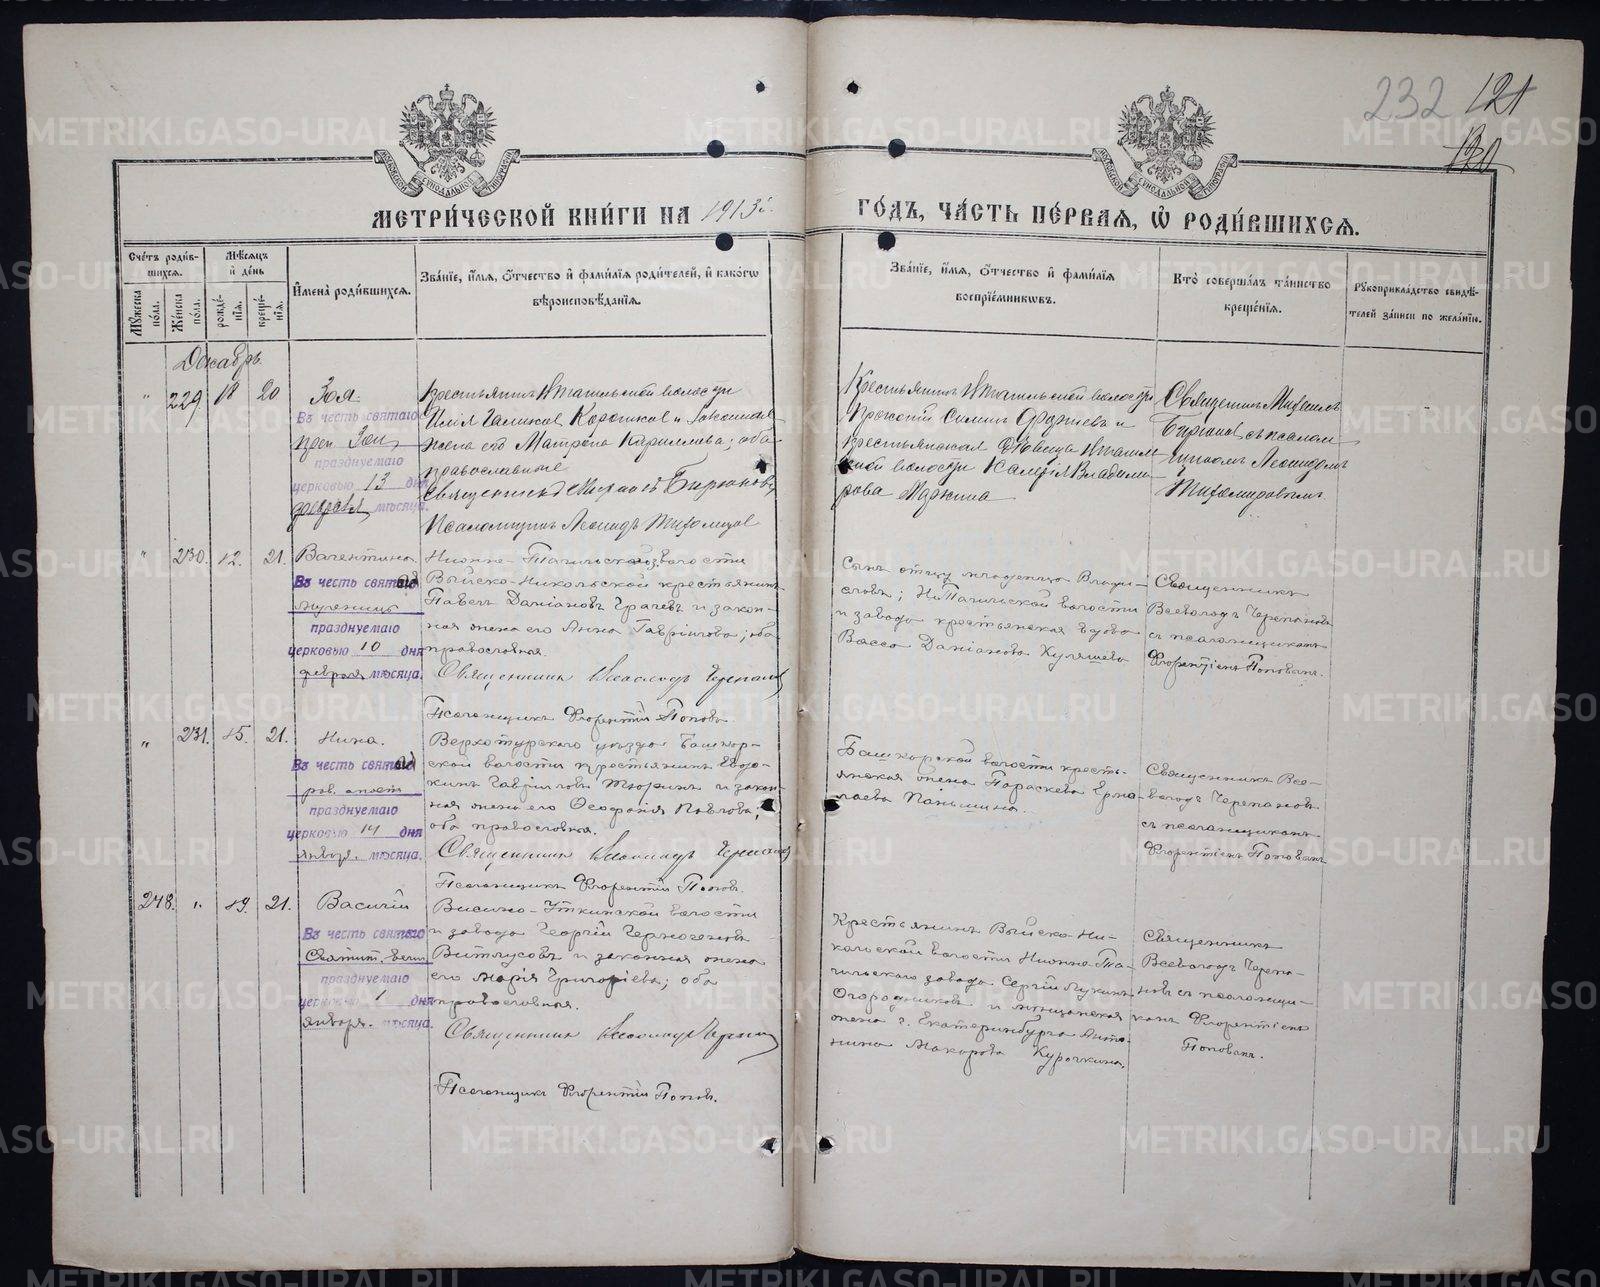 232 121
130
МОСКОВСКОЙ СУНОДАЛЬНОЙ ТИПОГРАФІИ
МЕТРИ́ЧЕСКОЙ КНИ́ГИ НА 1913 г.
ГО́ДЪ, ЧА́СТЬ ПЕ́РВАЯ, Ѡ҆ РОДИ́ВШИХСѦ.
Сче́тъ роди́вшихся.
Мѣ́сяцъ и҆ де́нь
Му́жеска по́ла.
Же́нска по́ла.
рожде́нія.
креще́нія.
И҆мена̀ роди́вшихся.
Зва́ніе, и҆́мя, ѻ҆́тчество и҆ фами́лія роди́телей, и҆ како́гѡ вѣроисповѣ́данія.
Зва́ніе, и҆́мя, ѻ҆́тчество и҆ фами́лія воспріе́мниковъ.
Кто̀ соверша́лъ та́инство креще́нія.
Рукоприкла́дство свидѣ́телей за́писи по жела́нію.
Декабрь
" 229 18 20
Зоя.
Въ честь святаго
преп. Зои
празднуемаго
церковью 13 дня
февраля мѣсяца.
Крестьянинъ волости
Илія и законная
жена его Матрона Кириллова; оба
православные
Священникъ Михаилъ Бирюковъ
Псаломщикъ Леонидъ Тихомировъ
Крестьянинъ волости
Силинъ и
крестьянская дѣвица
волости Валерія Владимирова
Священникъ Михаилъ
Бирюковъ съ псаломщикомъ
Леонидомъ
Тихомировымъ
" 230. 12. 21.
Валентина.
Въ честь святой
мученицы
празднуемаго
церковью 10 дня
февраля мѣсяца.
Нижне-Тагильской волости
Выйско-Никольской крестьянинъ
Павелъ Даміановъ Грачевъ и законная
жена его Анна Гавріилова; оба
православная.
Священникъ Всеволодъ Черепановъ
Псаломщикъ Флорентій Поповъ.
Сынъ отцу младенцу Владиславъ;
Н. Тагильской волости
и завода крестьянская вдова
Васса Даміанова Куляшева
Священникъ
Всеволодъ Черепановъ
съ псаломщикомъ
Флорентіемъ Поповымъ.
" 231. 15. 21.
Нина.
Въ честь святой
рав. апост
празднуемаго
церковью 14 дня
января. мѣсяца.
Верхотурскаго уѣзда Башкарской
волости крестьянинъ Евдокимъ
Гавріиловъ Тюринъ и законная
жена его Ѳеофанія Павлова;
оба православная.
Священникъ Всеволодъ Черепановъ
Псаломщикъ Флорентій Поповъ.
Башкарской волости крестьянская
жена Параскева Ермолаева
Паньшина.
Священникъ Всеволодъ
Черепановъ
съ псаломщикомъ
Флорентіемъ Поповымъ
248. " 19. 21.
Василій
Въ честь святаго
Святит. велик
празднуемаго
церковью 1 дня
января. мѣсяца.
Висимо-Уткинской волости
и завода Георгій
и законная жена
его Марія Григоріева; оба
православная.
Священникъ Всеволодъ Черепановъ
Псаломщикъ Флорентій Поповъ.
Крестьянинъ Выйско-Никольской
волости Нижне-Тагильскаго
завода Сергій Лукинъ
Огородниковъ и мѣщанская
жена г. Екатеринбурга Антонина
Макарова Курочкина.
Священникъ
Всеволодъ Черепановъ
съ псаломщикомъ
Флорентіемъ
Поповымъ.
METRIKI.GASO-URAL.RU